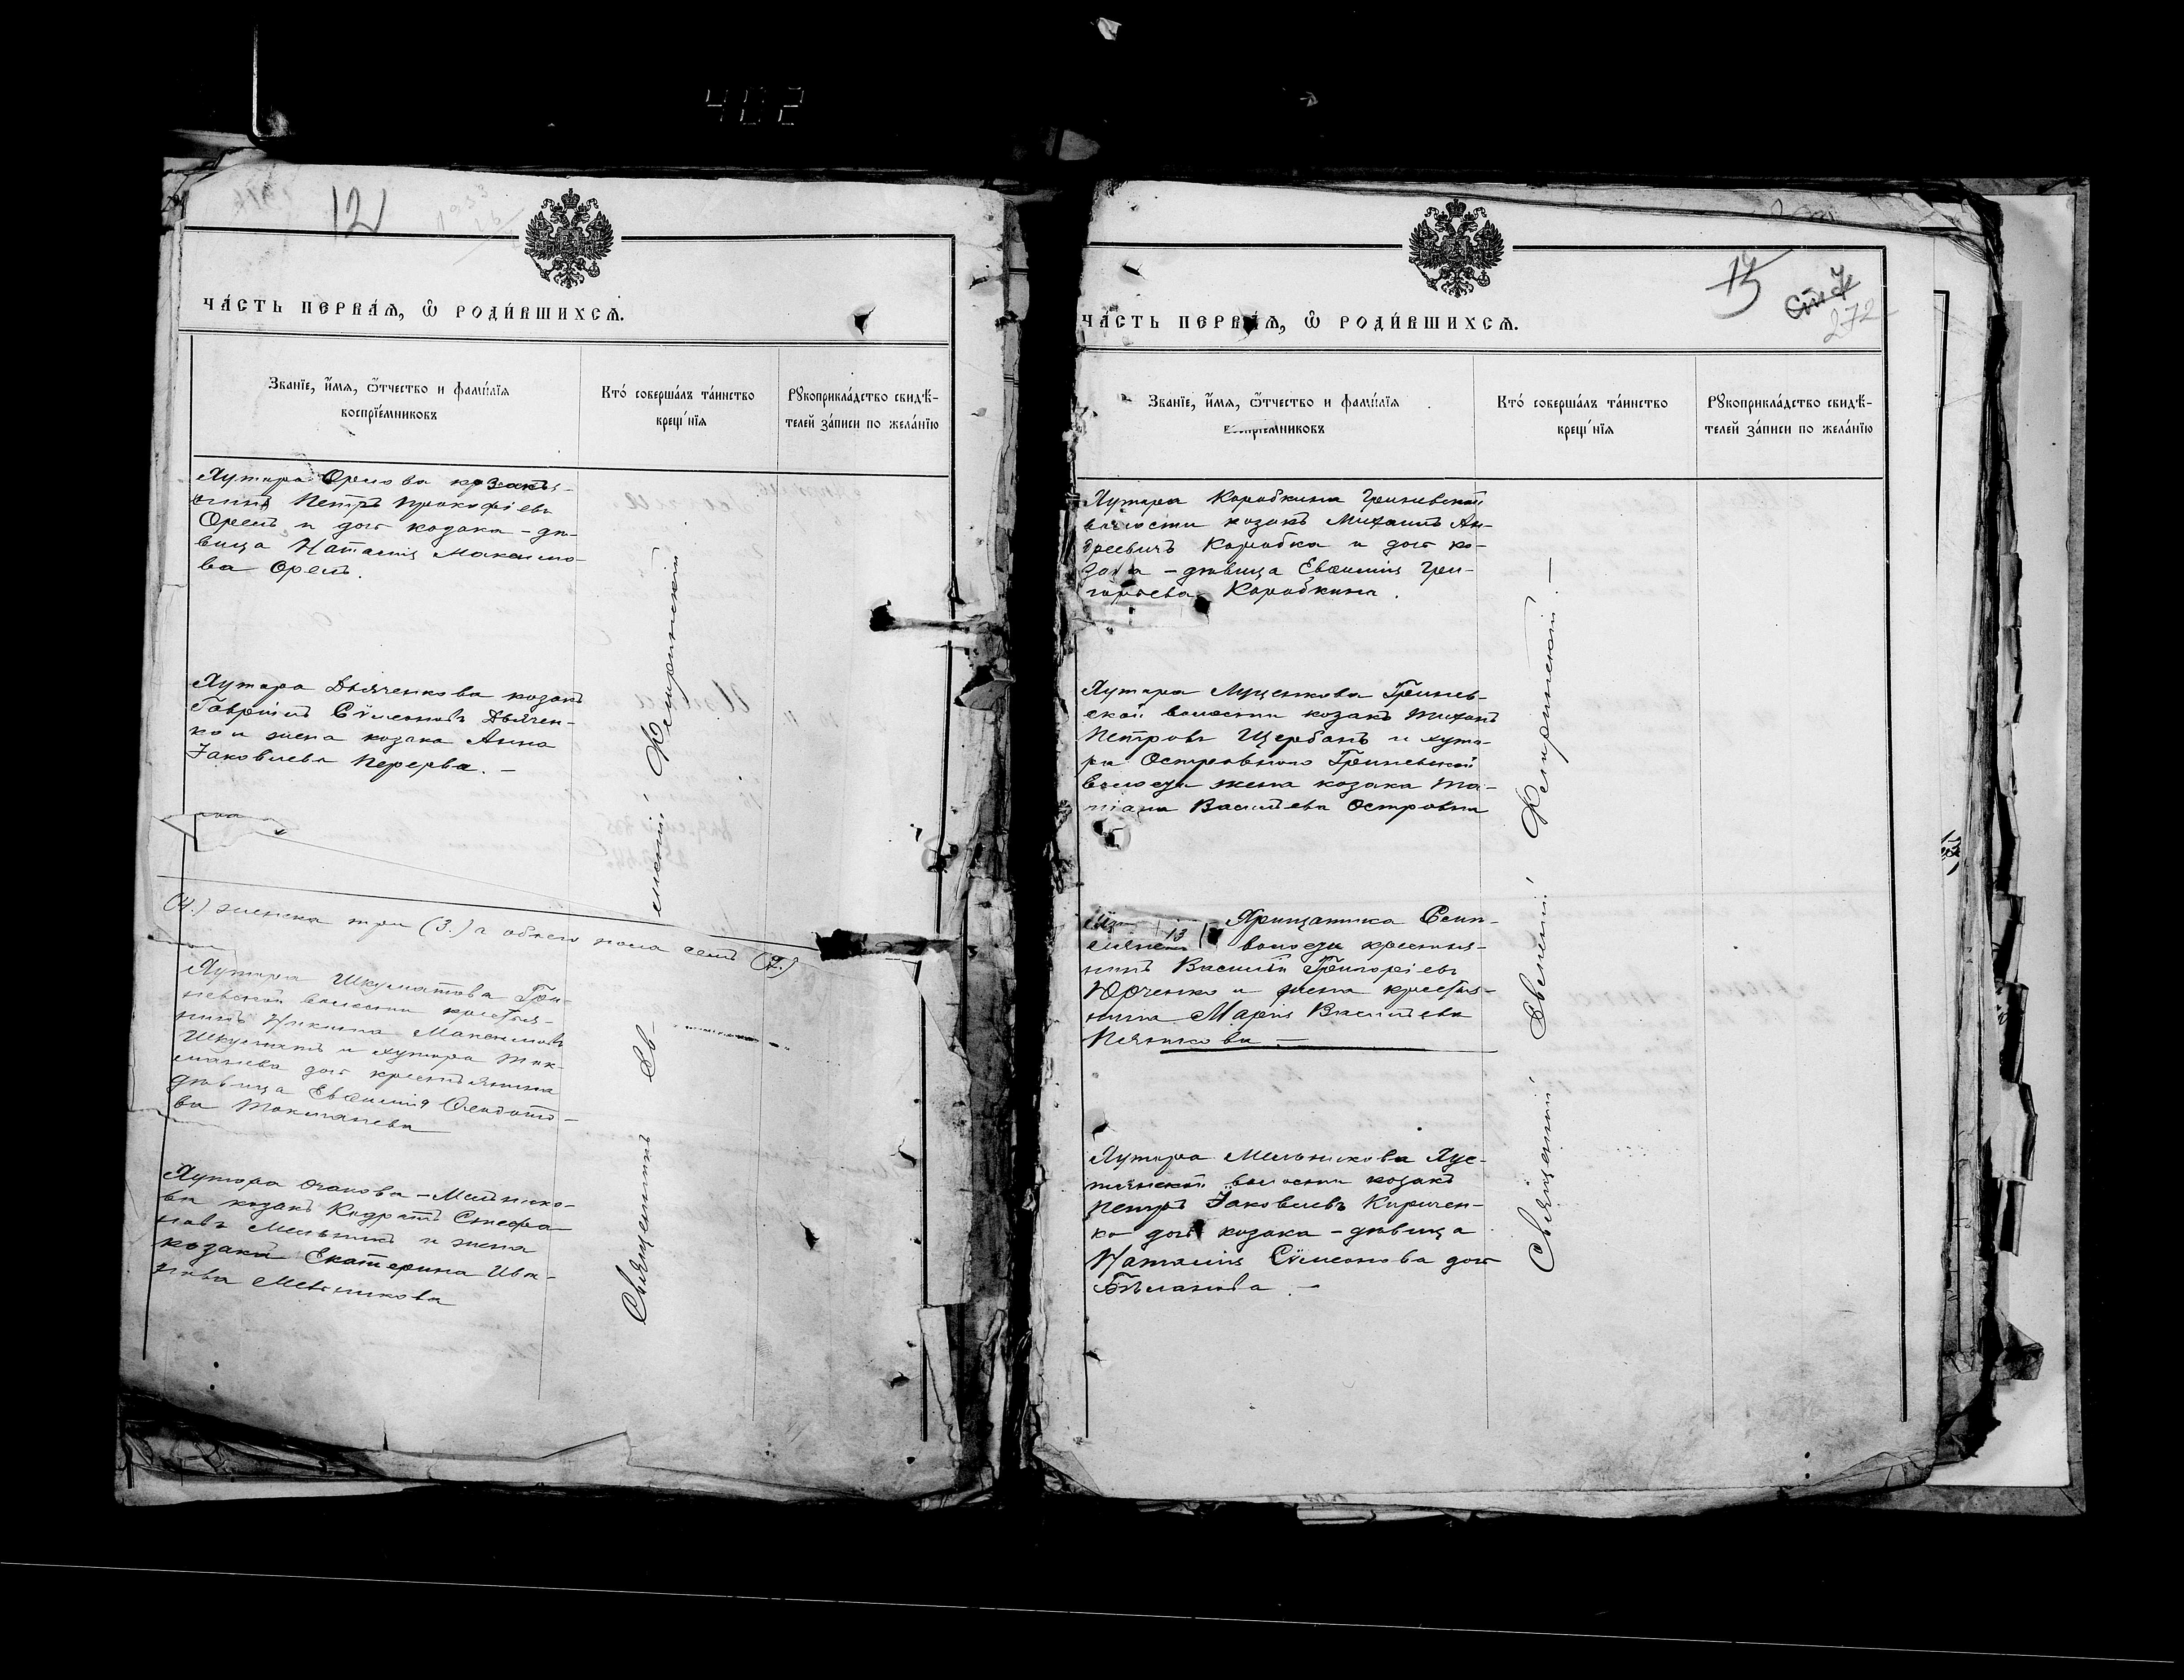 402
12
ЧА́СТЬ ПЕРВА́Ѧ, Ѿ РОДИ́ВШИХСѦ.
Зва́нїе, и҆́мѧ, ѻ҆́тчество и фами́лїѧ
воспрїе́мниковъ
Кто́ соверша́лъ та́инство
креще́нїѧ
Рꙋкоприкла́дство свидѣ́-
телей за́писи по жела́нїю
Хутора Орлова козакъ
Петръ Прокофіевъ
Орелъ и дочь козака - дѣ-
вица Наталія Максимо-
ва Орелъ.
Хутора Дьяченкова козакъ
Гавріилъ Сѵмеоновъ Дьячен-
ко и жена козака Анна
Іаковлева Перерва. -
(4.) женска три (3.) а обоего пола семь (7.)
Хутора Шкуматова Гри-
невской волости крестья-
нинъ Никита Максимовъ
Шкуматъ и хутора Ток-
манева дочь крестьянина
дѣвица Евфимія Феодото-
ва Токманева
Хутора Очакова-Мельнико-
ва козакъ Кодратъ Стефа
новъ Мельникъ и жена
козака Екатерина Ива-
нова Мельникова
Священникъ Ев-
мений
15
272
ЧА́СТЬ ПЕРВА́Ѧ, Ѿ РОДИ́ВШИХСѦ.
Зва́нїе, и҆́мѧ, ѻ҆́тчество и фами́лїѧ
воспрїе́мниковъ
Кто́ соверша́лъ та́инство
креще́нїѧ
Рꙋкоприкла́дство свидѣ́-
телей за́писи по жела́нїю
Хутора Коробкина Гриневской
волости козакъ Михаилъ Ан-
дреевичъ Коробка и дочь ко-
зака - дѣвица Евфимія Гри-
горьева Коробкина.
Хутора Луценкова Гринев-
ской волости козакъ
Петровъ Щербакъ и хуто-
ра Островного Гриневской
волости жена козака Та-
тіана Васильева Островна
13 Хрищатика
волости крестья-
нинъ Василій Григоріевъ
Юрченко и жена крестья-
нина Марія Васильева
Пятикова. -
Хутора Мельникова Хус-
тянской волости козакъ
Петръ Іаковлевъ Киричен-
ко дочь козака - дѣвица
Наталія Сѵмеонова дочь
Бѣланова. -
Священникъ Евмений